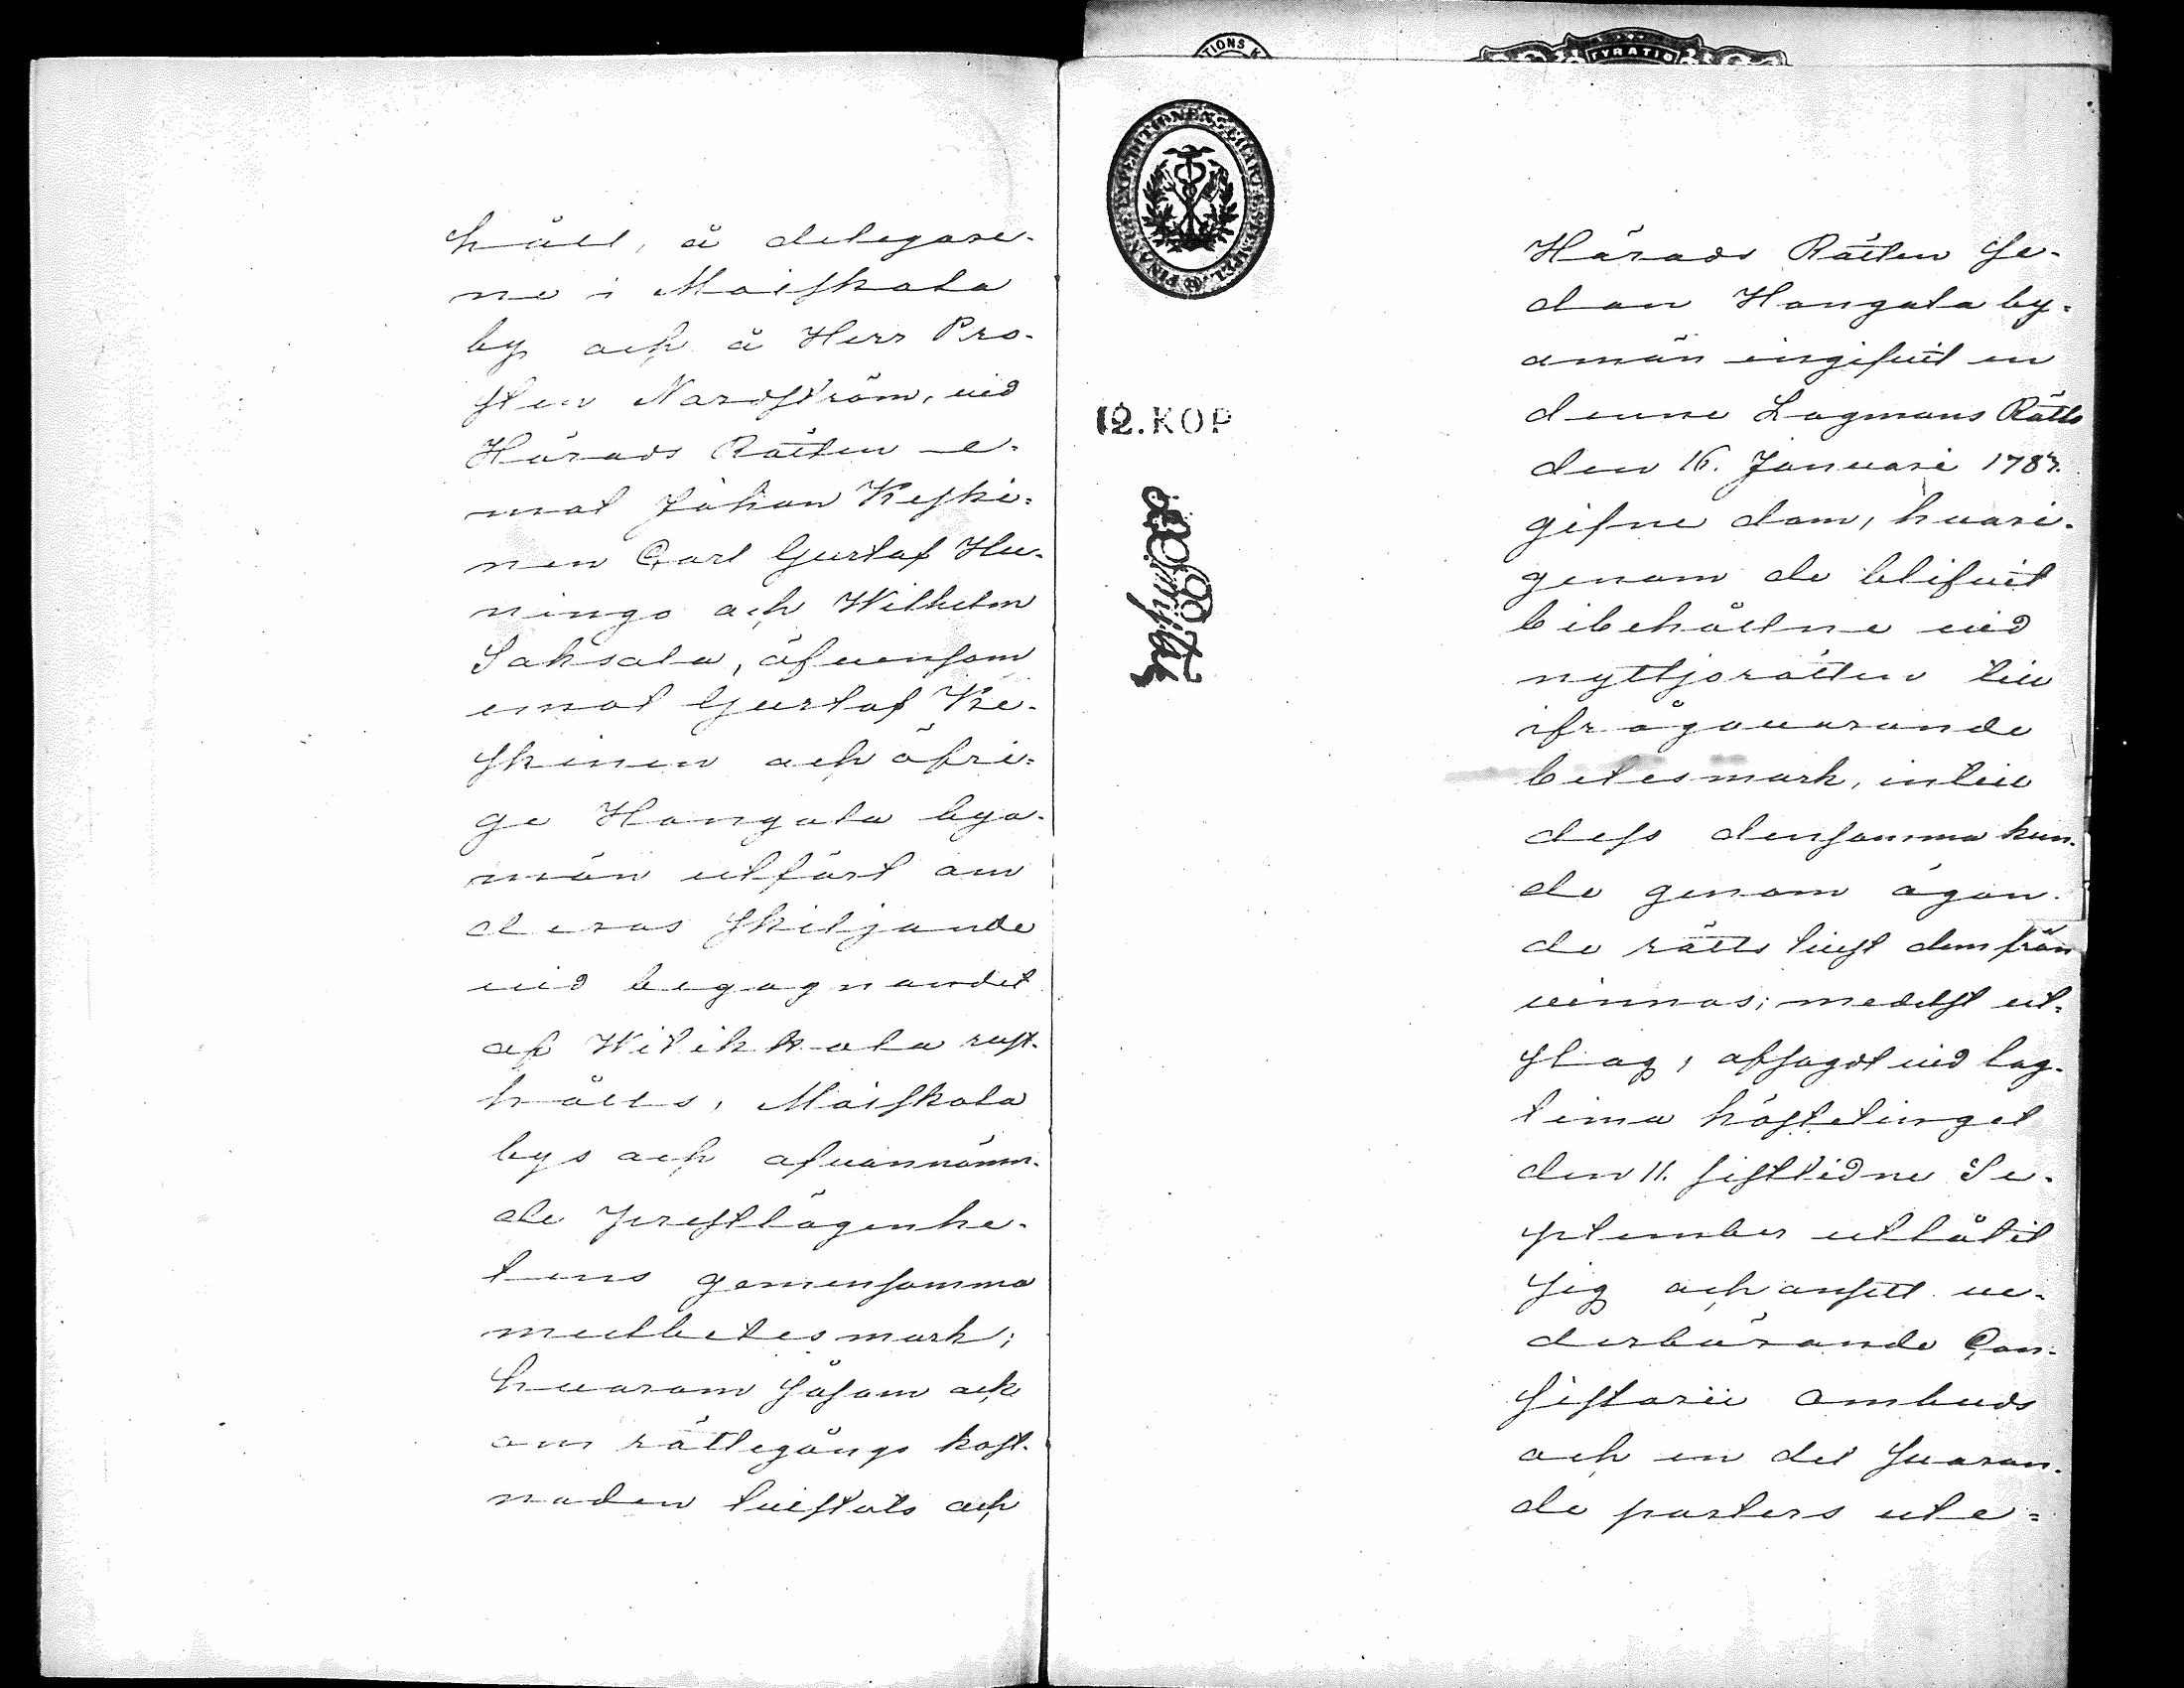 håll, å delegare-
ne i Moisskala
by och å Herr Pro-
sten Nordström, vid
Härads Rätten e-
mot Johan Keski-
nen Carl Gustaf Hu-
ningo och Wilhelm
Saksala, äfvensom
emot Gustaf Ke-
skinen och öfri-
ge Hongola bya-
män utfört om
deras skiljande
vid begagnandet
af Witikkala rust-
hålls, Moisskala
bys och ofvannämn-
de Prestlägenhe-
tens gemensamma
mulbetesmark;
hvarom såsom ock
om rättegångs kost-
naden tvistats och
TIONS K
TYRATI
FINANCE EXPEDITIONENS CHARTÆ STÄMPEL
12. KOP
Härads Rätten se-
dan Hongola by-
amän ingifvit en
denne Lagmans Rätts
den 16. Januari 1783.
gifne dom, hvari-
genom de blifvit
bibehållne vid
nyttjorätten till
ifrågavarande
betesmark, intill
dess densamma kun-
de genom ägan-
de rätts tvist dem från
vinnas; medelst ut-
slag, afsagdt vid lag-
tima höstetinget
den 11. sistlidne Se-
ptember utlåtit
sig och ansett ve-
derbörande Con-
sistorii Ombuds
och en del svaran-
de parters ute-